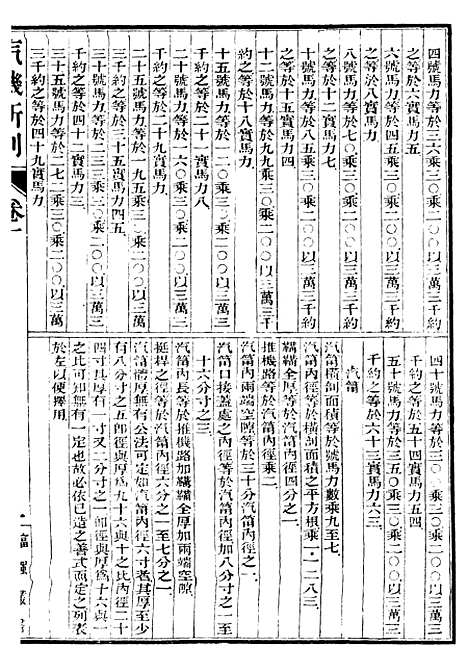 四號馬力等於三六乘三〇乘二〇〇以三萬三千約
之等於六實馬力五
六號馬力等於四五乘三〇乘二〇〇以三萬三千約
之等於八實馬力
八號馬力等於六五乘三〇乘二〇〇以三萬三千約
之等於十二實馬力
十號馬力等於八五乘三〇乘二〇〇以三萬三千約
之等於十五實馬力四
十二號馬力等於九九乘三〇乘二〇〇以三萬三千
約之等於十八實馬力
十五號馬力等於一二〇乘三〇乘二〇〇以三萬三
千約之等於二十一實馬力八
二十號馬力等於一六〇乘三〇乘二〇〇以三萬三
千約之等於二十九實馬力
二十五號馬力等於一九五乘三〇乘二〇〇以三萬
三千約之等於三十五實馬力四五
三十號馬力等於二三三乘三〇乘二〇〇以三萬
三千約之等於四十二實馬力三
三十五號馬力等於二七二乘三〇乘二〇〇以三萬
三千約之等於四十九實馬力
四十號馬力等於三〇〇乘三〇乘二〇〇以三萬三
千約之等於五十四實馬力五
五十號馬力等於三五〇乘三〇乘二〇〇以三萬三
千約之等於六十三實馬力六三
汽筩
汽筩橫剖面積等於號馬力數乘九至七
汽筩內徑等於橫剖面積之平方根乘一·一二八三
鞲鞴全厚等於汽筩內徑四分之一
推機路等於汽筩內徑乘二
汽筩內兩端空隙等於三十分汽筩內徑之一
汽筩口接蓋處之內徑等於汽筩內徑加八分寸之一至
十六分寸之三
汽筩內長等於推機路加鞲鞴全厚加兩端空隙
挺桿之徑等於汽筩內徑六分之一至七分之一
汽筩體厚無有公法可定如汽筩內徑六寸者其厚至少
有八分寸之五卽徑與厚爲九十六與十之比內徑二十
四寸其厚有一寸又二分寸之一卽徑與厚爲十六與一
之比可知無有一定也故必依已造之善式而定之列表
於左以便擇用
汽機新制
卷一
一
富強叢書